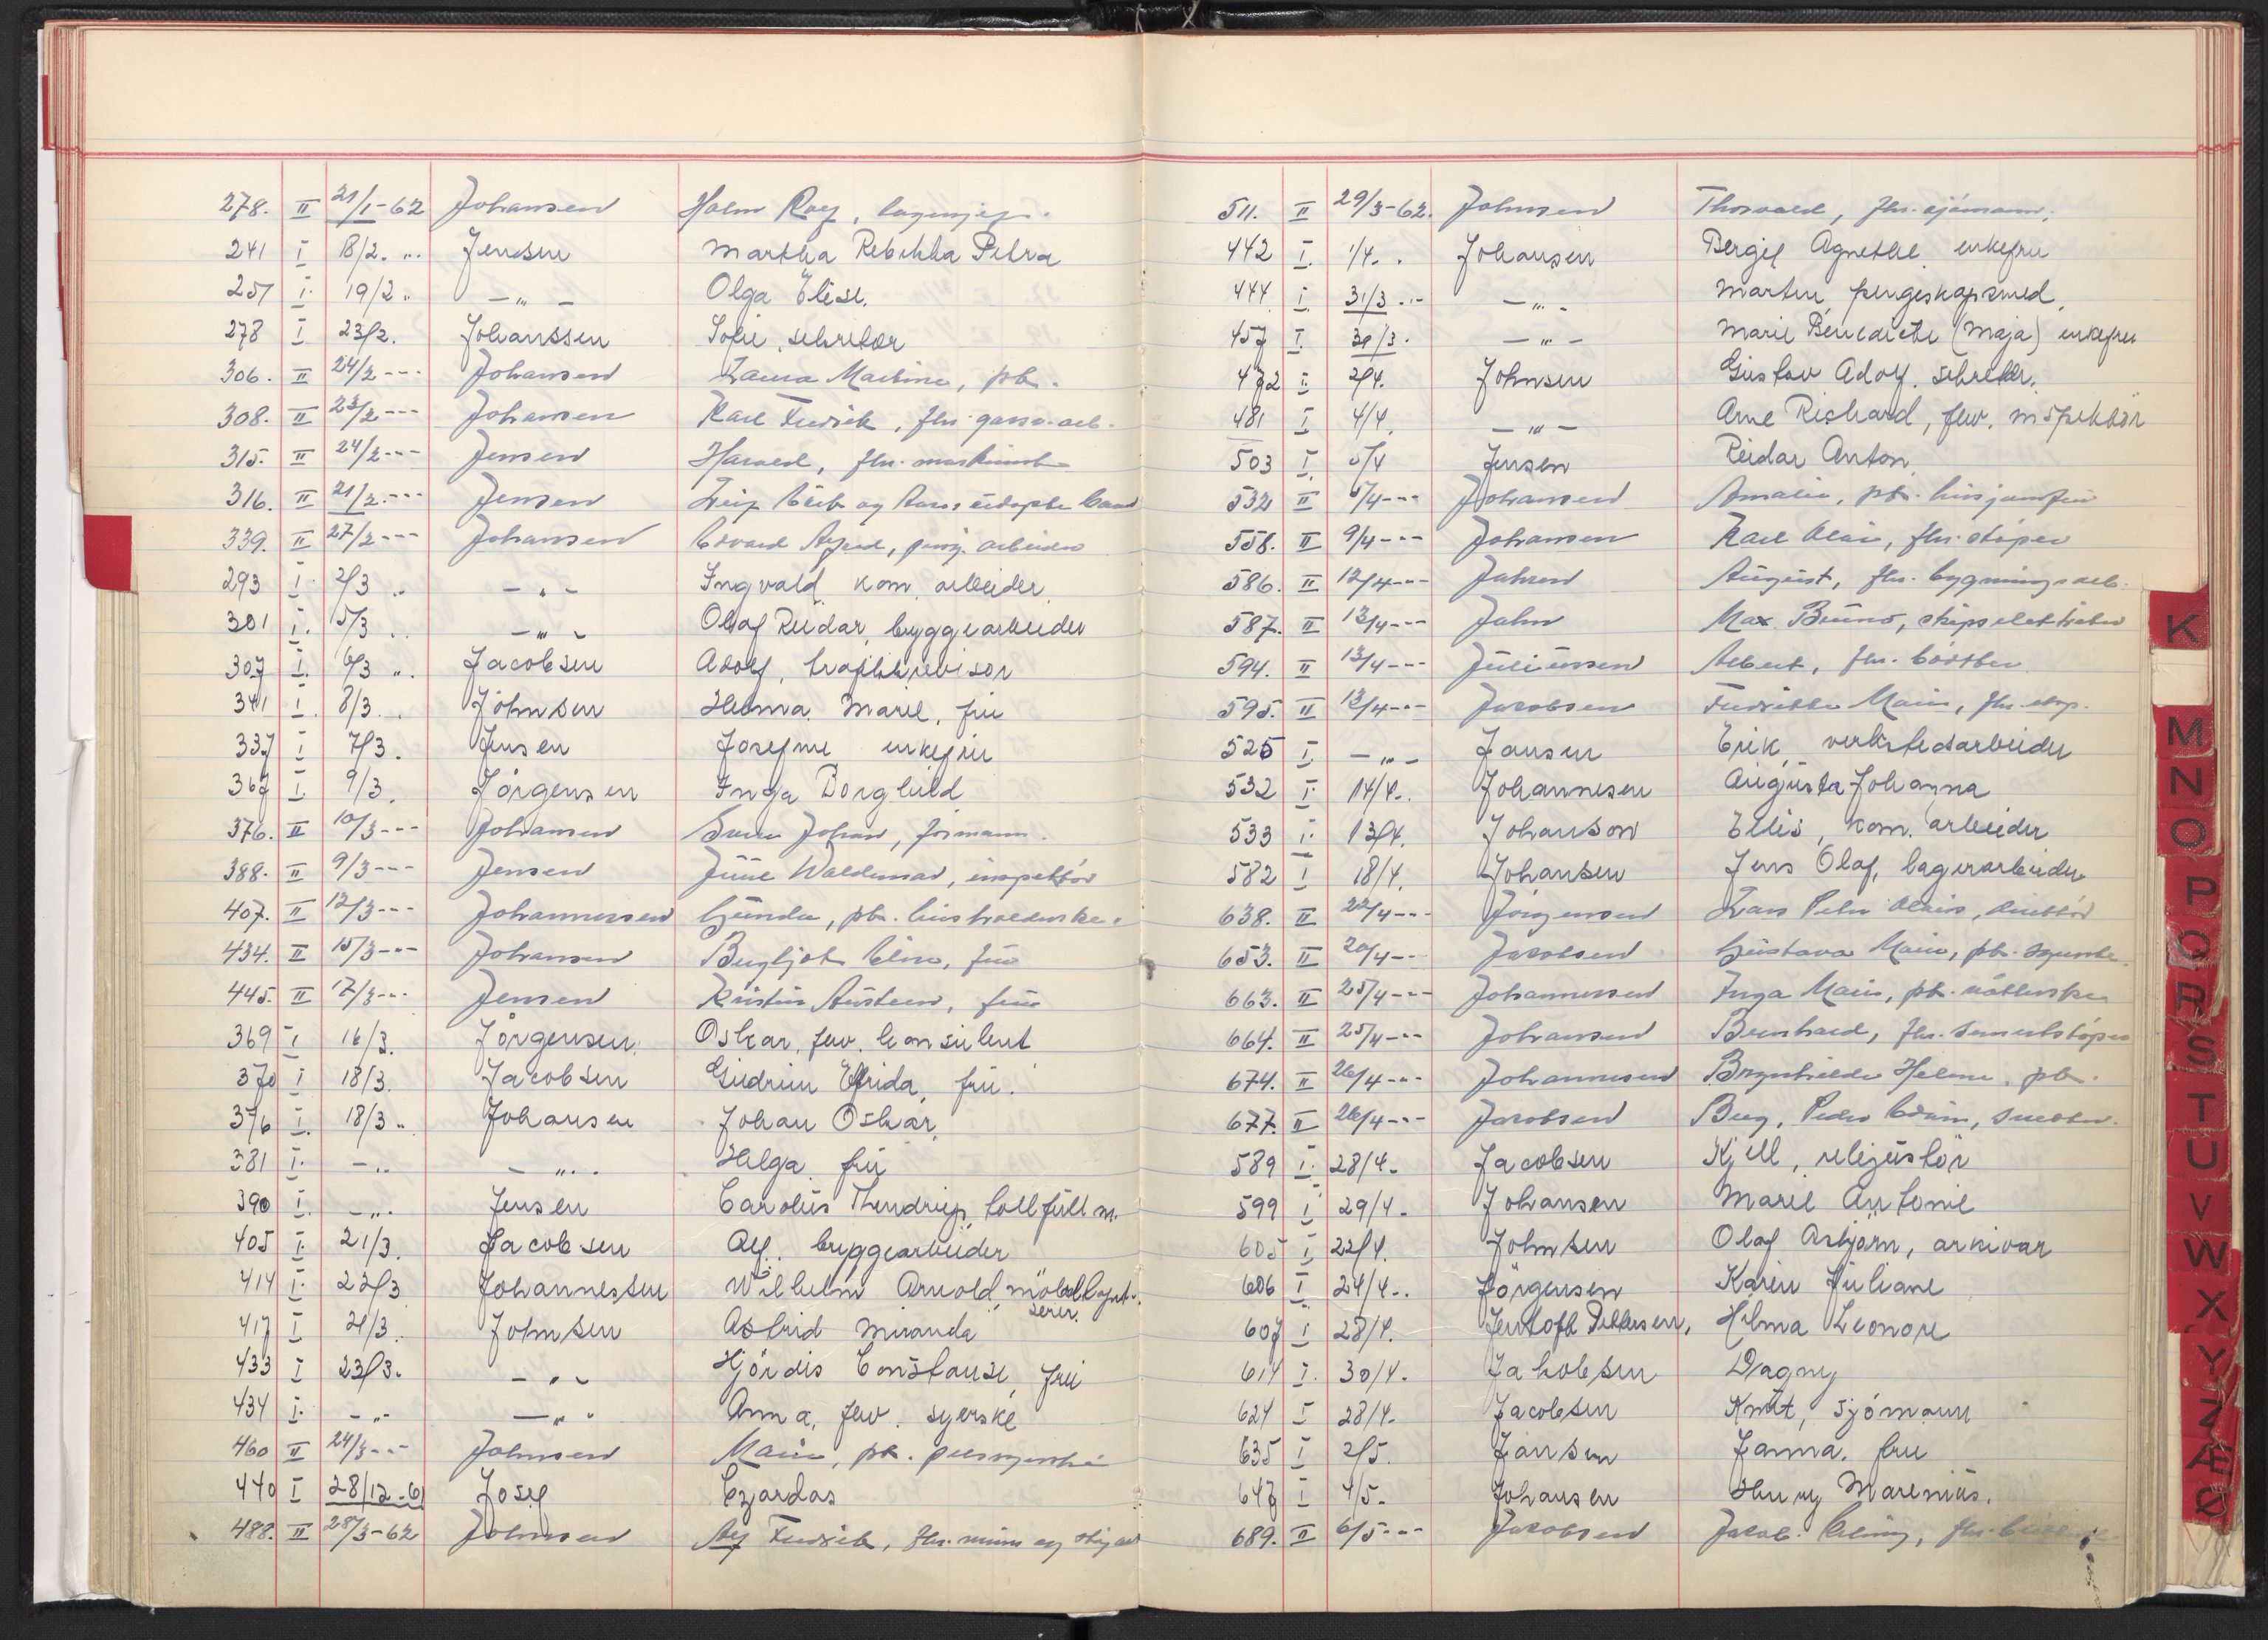 278. II 21/1-62 Johansen Holm Roy, lagersjef.
241 I 18/2. " Jensen Martha Rebekka Petra
251 I. 19/2 " — " — Olga Elise.
278 I 23/2. Johanssen Sofie, sekretær
306. II 24/2 --- Johansen Laura Martine, pb.
308. II 23/2 --- Johansen Karl Fredrik, fhv. gassv. arb.
315. II 24/2 --- Jensen Harald, fhv. maskinarb
316. II 21/2 --- Jensen Leif og
339. II 27/2 --- Johansen Edvard Alfred, arbeider
293 I. 2/3 " — " — Ingvald kom. arbeider
301 I. 15/3 — " — Olaf Reidar, bryggearbeider
307 I. 6/3 " Jacobsen Adolf, trafikkrevisor
341 I. 8/3. Johnsen Helma Marie, fru
337 I 7/3. Jensen Josefine enkefru
367 I. 9/3. Jörgensen Inga Borghild
376. II 10/3 --- Johansen Johan, formann.
388. II 9/3 --- Jensen Juul Waldemar, inspektør
407. II 12/3 --- Johannessen Gunda, pb. husholderske.
434. II 15/3 --- Johansen Bergljot Eline, fru
445. II 17/3 --- Jensen Kristin Austeen, fru
369 I 16/3. Jörgensen. Oskar, fhv. konsulent
370 I 18/3. Jacobsen Gudrun Elfrida, fru.
376 I. 18/3 " Johansen Johan Oskar,
381 I. — " — " — Helga fru
390 I. — " — Jensen Carolus Thendrup, tollfullm.
405 I. 21/3. Jacobsen Alf. bryggearbeider
414 I. 22/3 Johannessen Wilhelm Arnold, möbel
417 I 21/3. Johnsen Astrid Miranda
433 I 23/3. — " — Hjördis Constanse, fru
434 I. — " — — " — Anna, fhv. syerske
460 II 24/3 --- Johnsen Marie, pb. pelssyerske
440 I 28/12-61 Josef Czardas
488. II 28/3-62 Johnsen Alf Fredrik, fhv. murer og
511. II 29/3-62. Johnsen Thorvald, fhv. sjömann.
442 I. 1/4. Johansen Bergit Agnethe enkefru
444 I. 31/3 " — " — Martin, pengeskapsmed.
457 I. 30/3. — " — Marie Benedicte (Maja) enkefru
472 I. 2/4. Johnsen Gustav Adolf. sekretær.
481 I 4/4. — " — Arne Richard, fhv. inspektör
503 I. 5/4 Jensen Reidar Anton
532 II 5/4 --- Johansen Amalie, pb. husjomfru
558. II 9/4 --- Johansen Karl Olai, fhv. støper
586. II 12/4 --- Jahren August, fhv. bygningsarb.
587. II 13/4 --- Jahn Max Bruno, skipselektriker
594. II 13/4 --- Juliussen Albert, fhv.
595. II 12/4 --- Jacobsen Fredrikke Marie, fhv. eksp.
525 I. — " — Jansen Erik, verkstedarbeider
532 I. 14/4. Johannesen Augusta Johanna
533 I. 13/4. Johanson Ellis, kom. arbeider
582 I 18/4. Johansen Jens Olaf, lagerarbeider
638. II 22/4 --- Jörgensen Lars Peter
653. II 20/4 -- Jacobsen Gustava Marie, pb. syerske.
663. II 25/4 --- Johannessen Inga Marie, pb.
664. II 25/4 --- Johansen Bernhard, fhv. sementstøper
674. II 26/4 --- Johannesen Brynhilde Helene, pb.
677. II 26/4 --- Jacobsen Berg, Peder Edvin, snekker.
589 I. 28/4. Jacobsen Kjell, rekvisitör
599 I. 29/4. Johansen Marie Antonie
605 I. 22/4. Johnsen Olaf Asbjörn, arkivar
606 I 24/4. Jörgensen Karen Juliane
607 I 28/4. Jentoft Pettersen, Hilma Leonore
614 I. 30/4. Jakobsen Dagny
624 I 28/4. Jacobsen Knut, sjömann
635 I 2/5. Jansen Janna. fru
647 I 4/5. Johansen Henry Marenius.
689. II 6/5 --- Jacobsen Jacob
K
M
N
O
P
Q
R
S
T
U
V
W
X
Y
Z
Æ
Ø